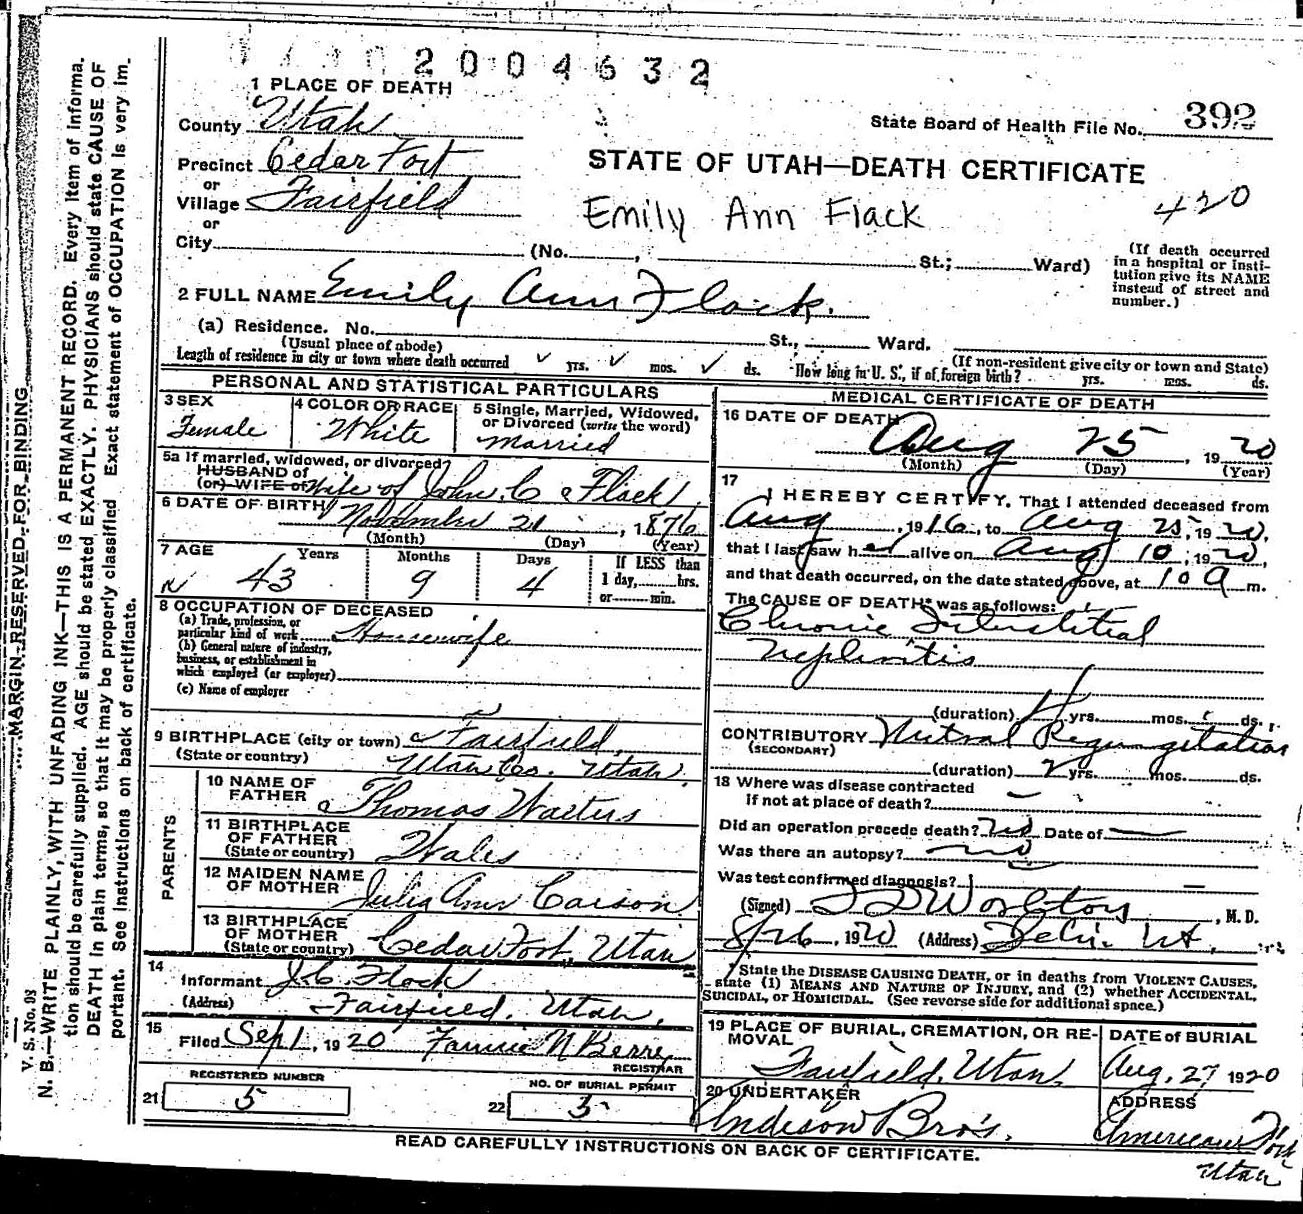 2004632
1 PLACE OF DEATH
County Utah
State Board of Health File No. 392
Precinct Cedar Fort
STATE OF UTAH—DEATH CERTIFICATE
or
Village Fairfield
Emily Ann Flack
420
or
City (No. , St.; Ward)
(If death occurred in a hospital or insti-tution give its NAME instead of street and number.)
2 FULL NAME Emily Ann Flack.
(a) Residence. No. St., Ward.
(Usual place of abode)
(If non-resident give city or town and State)
Length of residence in city or town where death occurred yrs. mos. ds. How long in U. S., if of foreign birth? yrs. mos. ds.
PERSONAL AND STATISTICAL PARTICULARS
3 SEX Female
4 COLOR OR RACE White
5 Single, Married, Widowed, or Divorced (write the word) Married
5a If married, widowed, or divorced
HUSBAND of
(or) WIFE of Wife of John C Flack
6 DATE OF BIRTH November 21, 1876
(Month) (Day) (Year)
7 AGE Years 43 Months 9 Days 4
If LESS than 1 day, hrs. or min.
8 OCCUPATION OF DECEASED
(a) Trade, profession, or particular kind of work Housewife
(b) General nature of industry, business, or establishment in which employed (or employer)
(c) Name of employer
9 BIRTHPLACE (city or town) Fairfield,
(State or country) Utah Co. Utah.
PARENTS
10 NAME OF FATHER Thomas Walters
11 BIRTHPLACE OF FATHER (State or country) Wales
12 MAIDEN NAME OF MOTHER Julia Ann Carson
13 BIRTHPLACE OF MOTHER (State or country) Cedar Fort, Utah
14
Informant J. C. Flack
(Address) Fairfield, Utah.
15
Filed Sep 1, 1920 Fannie N Berry
REGISTRAR
REGISTERED NUMBER
21 5
NO. OF BURIAL PERMIT
22 5
MEDICAL CERTIFICATE OF DEATH
16 DATE OF DEATH
Aug 25, 1920
(Month) (Day) (Year)
17
I HEREBY CERTIFY, That I attended deceased from
Aug, 1916, to Aug 25, 1920,
that I last saw her alive on Aug 10, 1920,
and that death occurred, on the date stated above, at 10 a m.
The CAUSE OF DEATH* was as follows:
Chronic Interstitial
Nephritis
(duration) 4 yrs. mos. ds.
CONTRIBUTORY Mitral Regurgitation
(SECONDARY)
(duration) 2 yrs. mos. ds.
18 Where was disease contracted
If not at place of death? —
Did an operation precede death? No Date of —
Was there an autopsy? no
Was test confirmed diagnosis? —
(Signed) , M. D.
8/26, 1920 (Address) Lehi. Ut.
State the DISEASE CAUSING DEATH, or in deaths from VIOLENT CAUSES, state (1) MEANS AND NATURE OF INJURY, and (2) whether ACCIDENTAL, SUICIDAL, or HOMICIDAL. (See reverse side for additional space.)
19 PLACE OF BURIAL, CREMATION, OR RE-MOVAL
Fairfield, Utah.
DATE of BURIAL
Aug. 27 1920
20 UNDERTAKER
Anderson Bro's.
ADDRESS
American Fork
Utah
READ CAREFULLY INSTRUCTIONS ON BACK OF CERTIFICATE.
MARGIN RESERVED FOR BINDING
V. S. No. 98
N. B.—WRITE PLAINLY, WITH UNFADING INK—THIS IS A PERMANENT RECORD. Every item of informa-
tion should be carefully supplied. AGE should be stated EXACTLY. PHYSICIANS should state CAUSE OF
DEATH in plain terms, so that it may be properly classified. Exact statement of OCCUPATION is very im-
portant. See instructions on back of certificate.